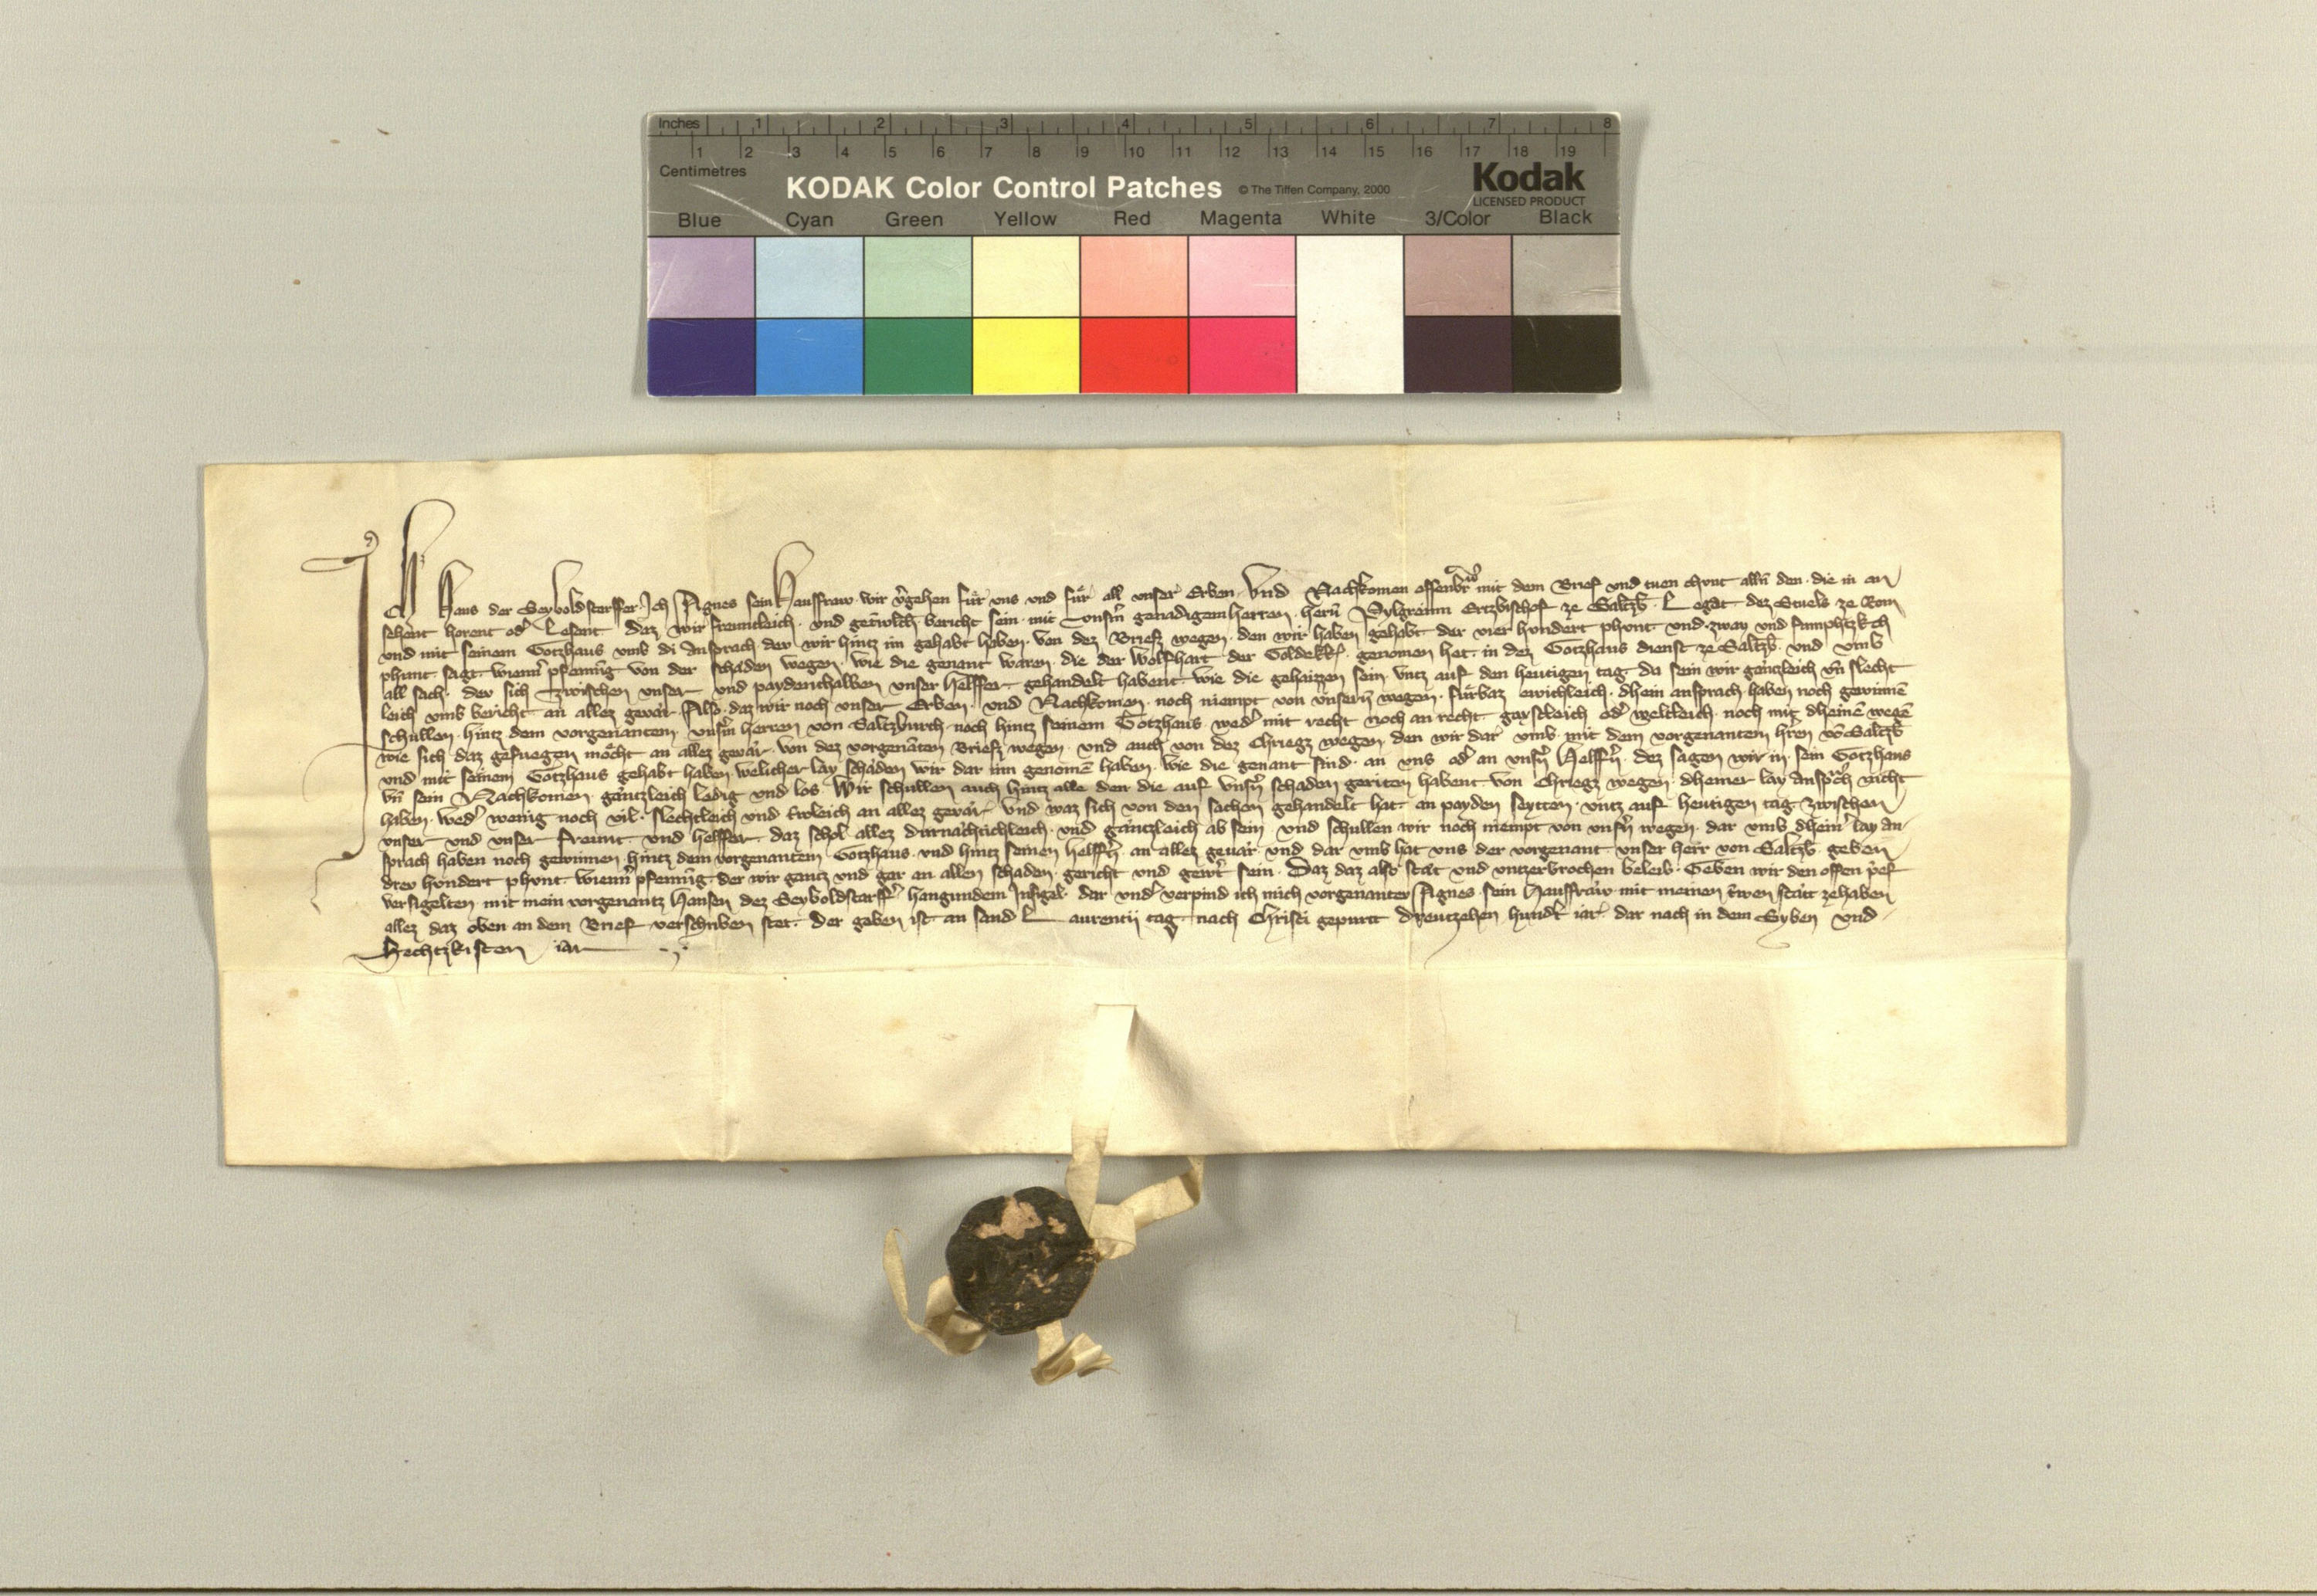 Inches 1 2 3 4 5 6 7 8
1 2 3 4 5 6 7 8 9 10 11 12 13 14 15 16 17 18 19
Centimetres
KODAK Color Control Patches © The Tiffen Company, 2000 Kodak
LICENSED PRODUCT
Blue Cyan Green Yellow Red Magenta White 3/Color Black
Ich Hans der Seyboldstorffer Ich Agnes sein Hausfraw wir v̾gehen fuͤr uns und fuͤr all unser Erben Und Nachkomen offenbar mit dem Brief und tuen chunt alln̄ den die in an
sehent horent od̾ Lesent daz wir freuntleich und bericht sein mit Unsm̄ genadigem herren hern̄ Pylgreim Ertzbischof ze Saltzb̄ Legat dez Stuels ze Rom
und mit seinem Gotzhaus umb di Ansprach der wir hintz im gehabt haben von dez Briefz wegen den wir haben gehabt der vier hundert phunt und zway und funphtzkch
phunt wienn̾ pfenning von der schaden wegen wie die genant waren die der Wolfhart der Goldekk̾ genomen hat in dez Gotzhaus dienst ze Saltzb̄ und umb
all sach der sich zwischen unser und paydenthalben unser helffer gehandelt habent wie die gehaizzen sein untz auf den heutigen tag da sein wir gantzleich un̄ slecht
leich umb bericht an allez gevaͤr Also daz wir noch unser Erben und Nachkomen noch niempt von unsern̄ wegen fuͤrbaz ewichleich dhein ansprach haben noch gewinnē
schullen hintz dem vorgenantem unsm̄ herren von Saltzburch noch hintz seinem Gotzhaus wed̾ mit recht noch an recht gaystleich od̾ weltleich noch mit dheinē wegē
wie sich daz gefuegen moͤcht an allez gevaͤr von dez vorgenāten Briefz wegen und auch von dez Chriegz wegen den wir dar umb mit dem vorgenantem hren vō Saltzb̄
und mit seinem Gotzhaus gehabt haben welicher lay schaͤden wir dar inn genomē haben wie die genant sind an uns od̾ an unsn̄ Helffn̄ dez sagen wir in sein Gotzhaus
un̄ sein Nachkomen gaͤntzleich ledig und los Wir schullen auch hintz alle den die auf unsn̄ schaden geriten habent von Chriegz wegen dheiner lay Ansprͦch nicht
haben wed̾ wenig noch vil slechtleich und trwleich an allez gevaͤr Und waz sich von den sachen gehandelt hat an payden seytten untz auf heutigen tag zwischen
unser und unser freunt und helffer daz schol allez durnaͤchtichleich und gaͤntzleich ab sein und schullen wir noch niempt von unsn̄ wegen dar umb dhein̾ lay an
sprach haben noch gewinnen hintz dem vorgenantem Gotzhaus und hintz seinen helffn̄ an allez gevaͤr und dar umb hat uns der vorgenant unser herr von Saltzb̄ geben
drev hundert phunt wienn̾ pfenning der wir gantz und gar an allen schaden gericht und gewert sein Daz daz also staͤt und untzerbrochen beleib Geben wir den offen p̾ef
versigelten mit mein vorgenantz Hansen dez Seyboldstorff̾ hangundem Insigel dar und̾ verpind ich mich vorgenantev Agnes sein Hausfraw mit meinen trwen staͤtt zehaben
allez daz oben an dem Brief verschriben stet Der geben ist an sand Laurentij tag nach Christi gepurtt Dreutzehen hundt̾ iar dar nach in dem Syben und
Sechtzkisten iar